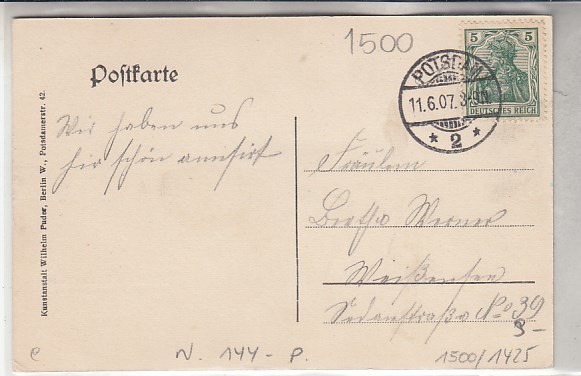 1500
Postkarte
5 5
DEUTSCHES REICH
POTSDAM
11.6.07. 8-9N
* 2 *
Wir haben uns
hier schön amüsirt
Fräulein
Bertha Werner
Weißensee
Sedanstraße No 39
Kunstanstalt Wilhelm Puder, Berlin W., Potsdamerstr. 42.
e
N. 144 - P.
3-
1500/1425